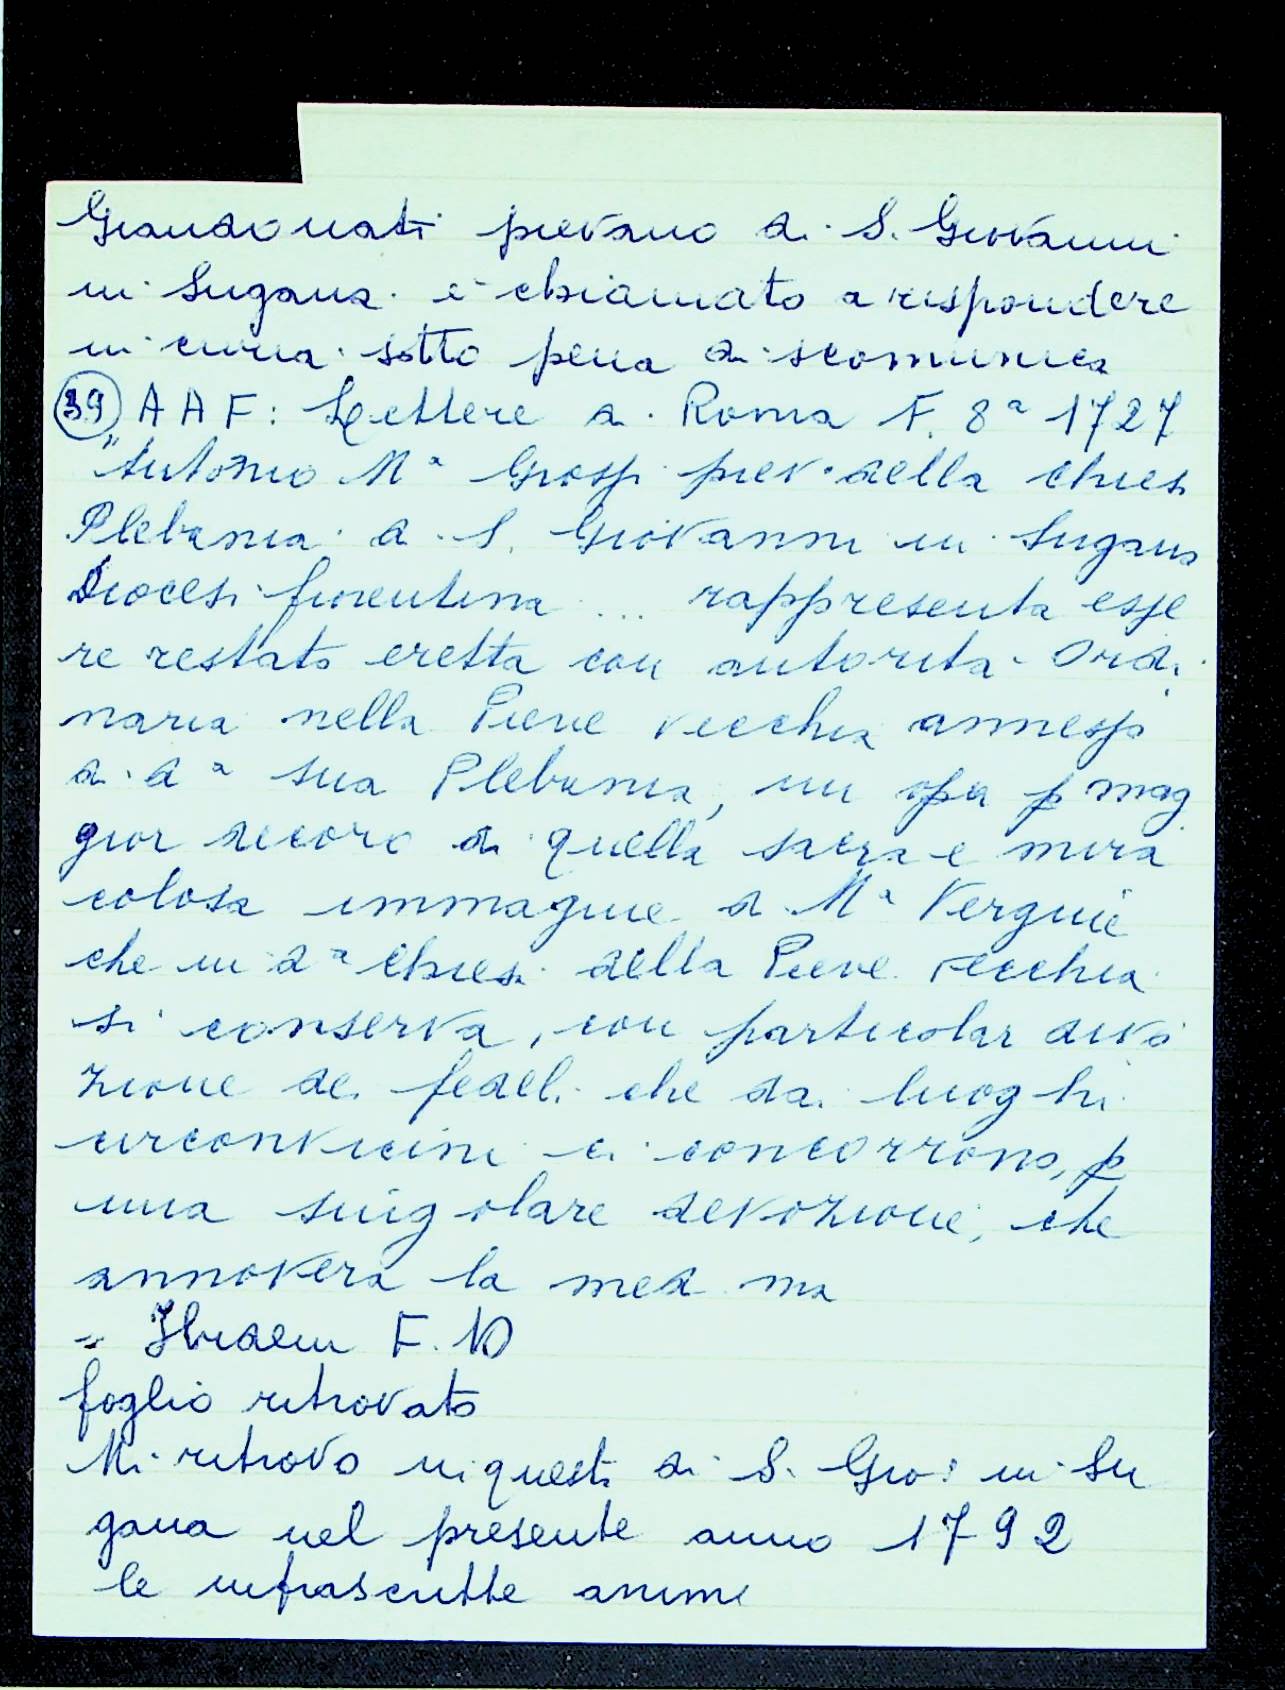 Giandonati pievano di S. Giovanni
in Sugana è chiamato a rispondere
in curia sotto pena di scomunica
39 AAF: Lettere di Roma F. 8ª 1727
"Antonio Mª Grossi piev. della chiesa
Plebania di S. Giovanni in Sugana
Diocesi fiorentina ... rappresenta esse
re restato eretta con autorità Ordi
naria nella Pieve Vecchia annessa
a dª sua Plebania, un opa p mag
gior decoro di quella sacra e mira
colosa immagine di Mª Vergine
che in dª chiesa della Pieve Vecchia
si conserva, con particolar divo
zione dei fedeli che dai luoghi
circonvicini ci concorrono, p
una singolare devozione, che
annovera la med.ma
" Ibidem F. 10
foglio ritrovato
Mi ritrovo in questa di S. Gio: in Su
gana nel presente anno 1792
le infrascritte anime